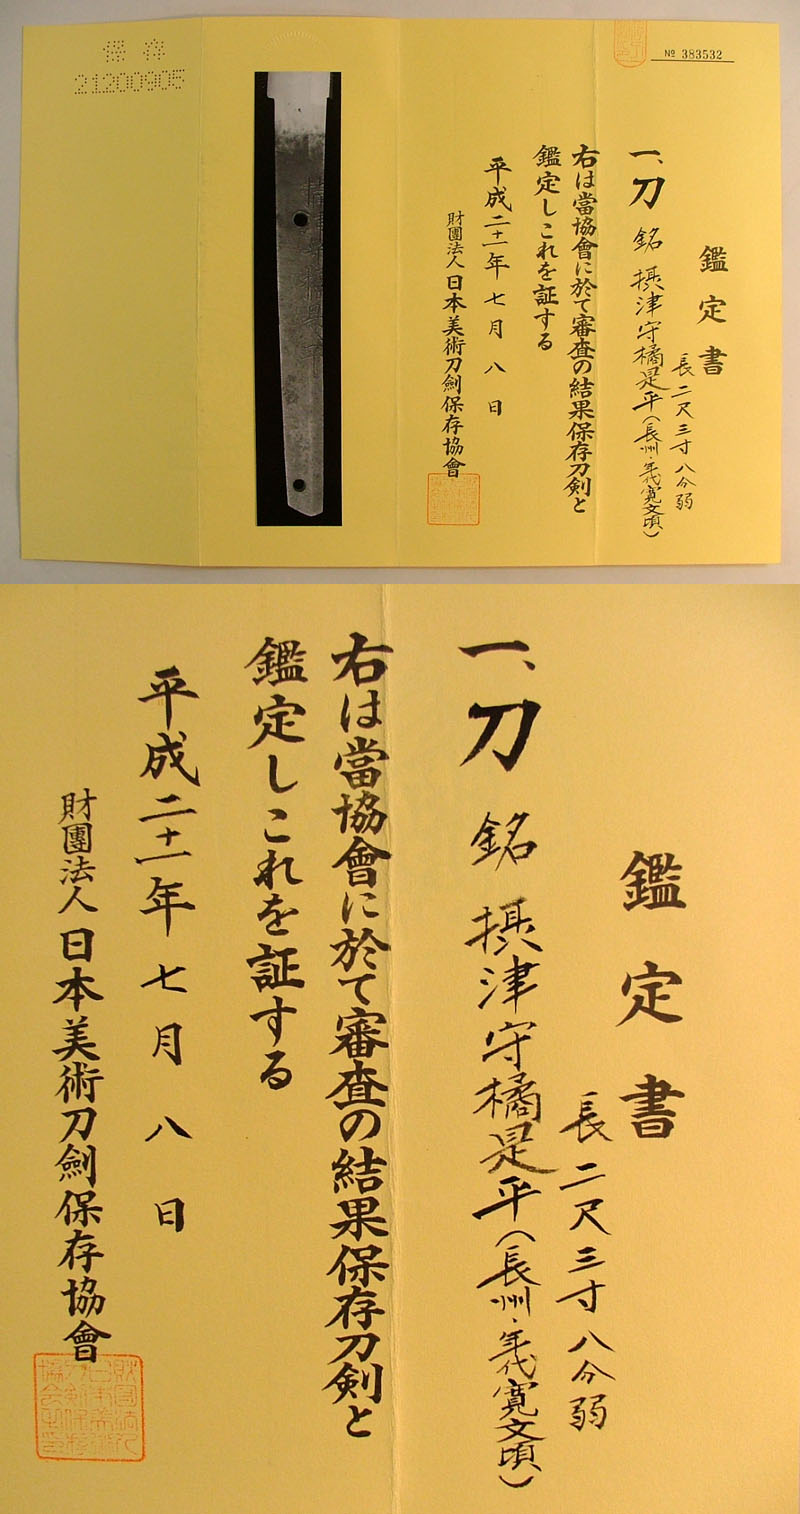 保存
21200905
№ 383532
鑑定書
長二尺三寸八分弱
一、刀 銘 摂津守橘是平(長州・年代寛文頃)
右は當協會に於て審査の結果保存刀剣と
鑑定しこれを証する
平成二十一年七月八日
財團法人日本美術刀劍保存協會
鑑定書
長二尺三寸八分弱
一、刀 銘 摂津守橘是平(長州・年代寛文頃)
右は當協會に於て審査の結果保存刀剣と
鑑定しこれを証する
平成二十一年七月八日
財團法人日本美術刀劍保存協會